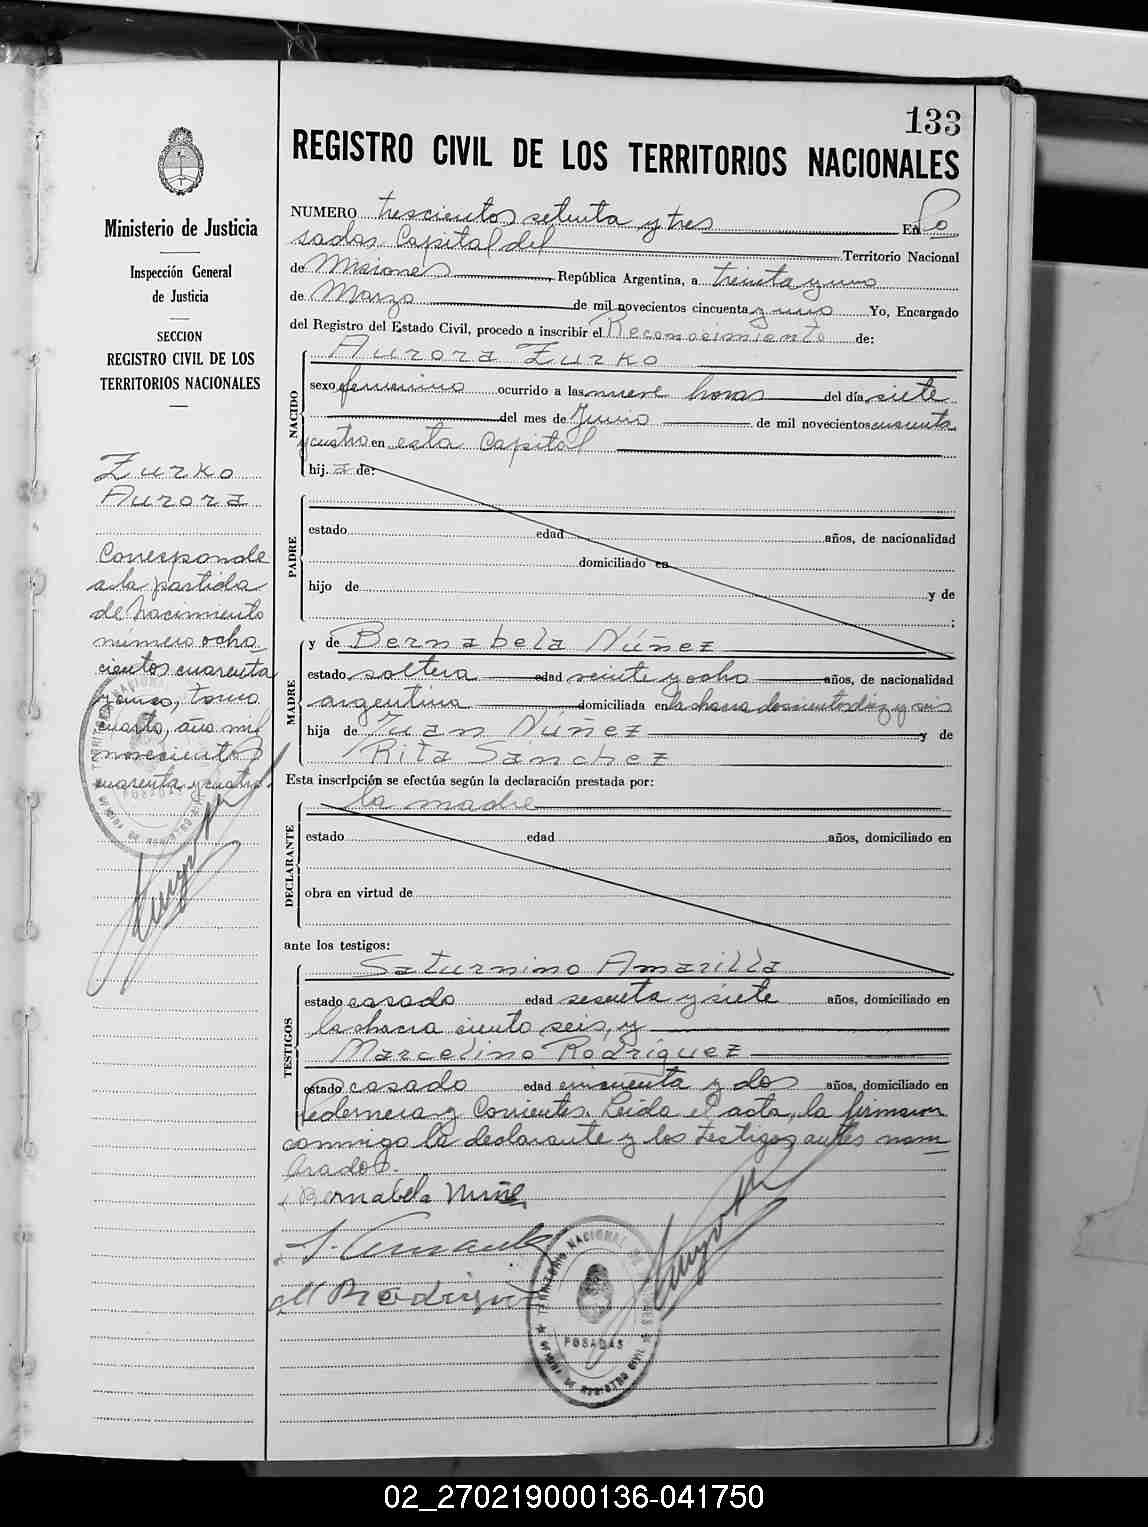 133
REGISTRO CIVIL DE LOS TERRITORIOS NACIONALES
Ministerio de Justicia
Inspección General
de Justicia
SECCION
REGISTRO CIVIL DE LOS
TERRITORIOS NACIONALES
Zurko
Aurora
Corresponde
a la partida
de nacimiento
número ocho
cientos cuarenta
y cinco, tomo
cuarto, año mil
novecientos
cuarenta y cuatro.
NUMERO trescientos setenta y tres En Po
sadas Capital del Territorio Nacional
de Misiones, República Argentina, a treinta y uno
de Marzo de mil novecientos cincuenta y uno Yo, Encargado
del Registro del Estado Civil, procedo a inscribir el Reconocimiento de:
Aurora Zurko
NACIDO
sexo femenino ocurrido a las nueve horas del día siete
del mes de Junio de mil novecientos cuarenta
y cuatro en esta Capital
hij.a de:
PADRE
estado edad años, de nacionalidad
domiciliado en
hijo de y de
;
MADRE
y de Bernabela Núñez
estado soltera edad veinte y ocho años, de nacionalidad
argentina domiciliada en la chacra doscientos diez y seis
hija de Juan Núñez y de
Rita Sánchez
Esta inscripción se efectúa según la declaración prestada por:
la madre
DECLARANTE
estado edad años, domiciliado en
obra en virtud de
ante los testigos:
Saturnino Amarilla
TESTIGOS
estado casado edad sesenta y siete años, domiciliado en
la chacra ciento seis, y
Marcelino Rodríguez
estado casado edad cincuenta y dos años, domiciliado en
Pedernera y Corrientes. Leida el acta, la firmaron
conmigo la declarante y los testigos antes nom
brados.
Bernabela Nuñe
M Rodrigu
TERRITORIO NACIONAL DE MISIONES
POSADAS
OFICINA DE REGISTRO CIVIL
02_270219000136-041750